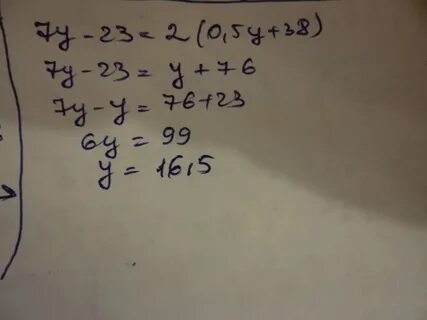 7y - 23 = 2 (0,5y + 38)
7y - 23 = y + 76
7y - y = 76 + 23
6y = 99
y = 16,5